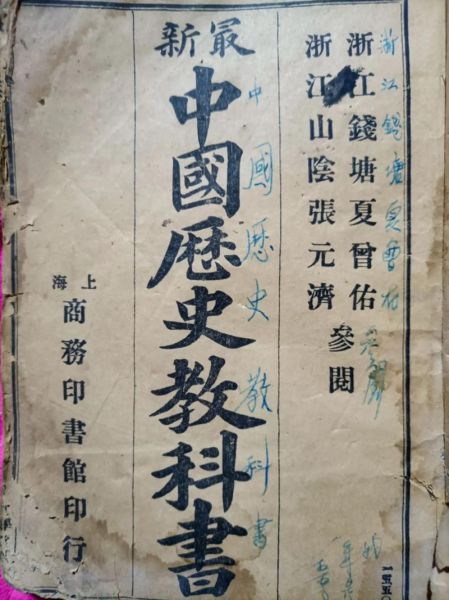 浙江錢塘夏曾佑
浙江錢塘夏曾佑
浙江山陰張元濟
參閱
中國歷史教科書
最新
中國歷史教科書
上海
商務印書館印行